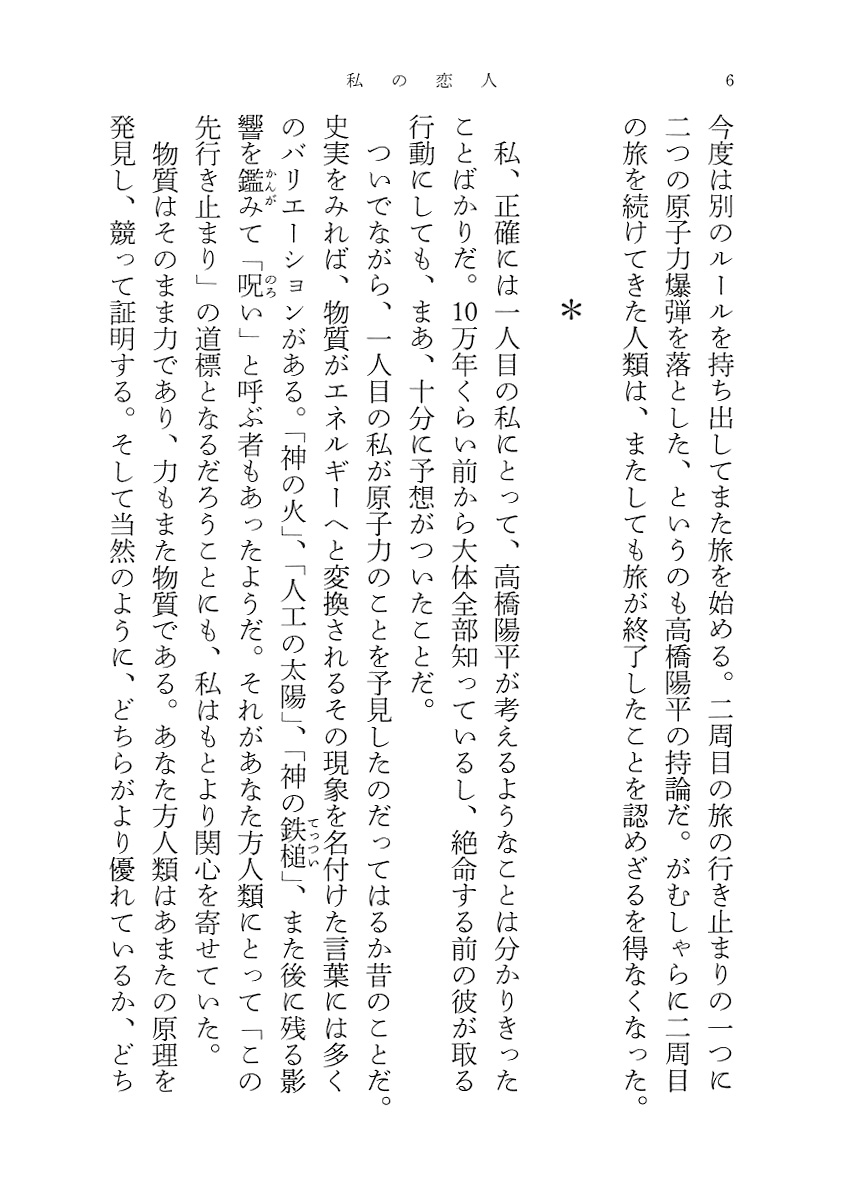 私の恋人
6
今度は別のルールを持ち出してまた旅を始める。二周目の旅の行き止まりの一つに
二つの原子力爆弾を落とした、というのも高橋陽平の持論だ。がむしゃらに二周目
の旅を続けてきた人類は、またしても旅が終了したことを認めざるを得なくなった。
＊
私、正確には一人目の私にとって、高橋陽平が考えるようなことは分かりきった
ことばかりだ。10万年くらい前から大体全部知っているし、絶命する前の彼が取る
行動にしても、まあ、十分に予想がついたことだ。
ついでながら、一人目の私が原子力のことを予見したのだってはるか昔のことだ。
史実をみれば、物質がエネルギーへと変換されるその現象を名付けた言葉には多く
のバリエーションがある。「神の火」、「人工の太陽」、「神の鉄槌」、また後に残る影
てっつい
響を鑑みて「呪い」と呼ぶ者もあったようだ。それがあなた方人類にとって「この
かんが
のろ
先行き止まり」の道標となるだろうことにも、私はもとより関心を寄せていた。
物質はそのまま力であり、力もまた物質である。あなた方人類はあまたの原理を
発見し、競って証明する。そして当然のように、どちらがより優れているか、どち